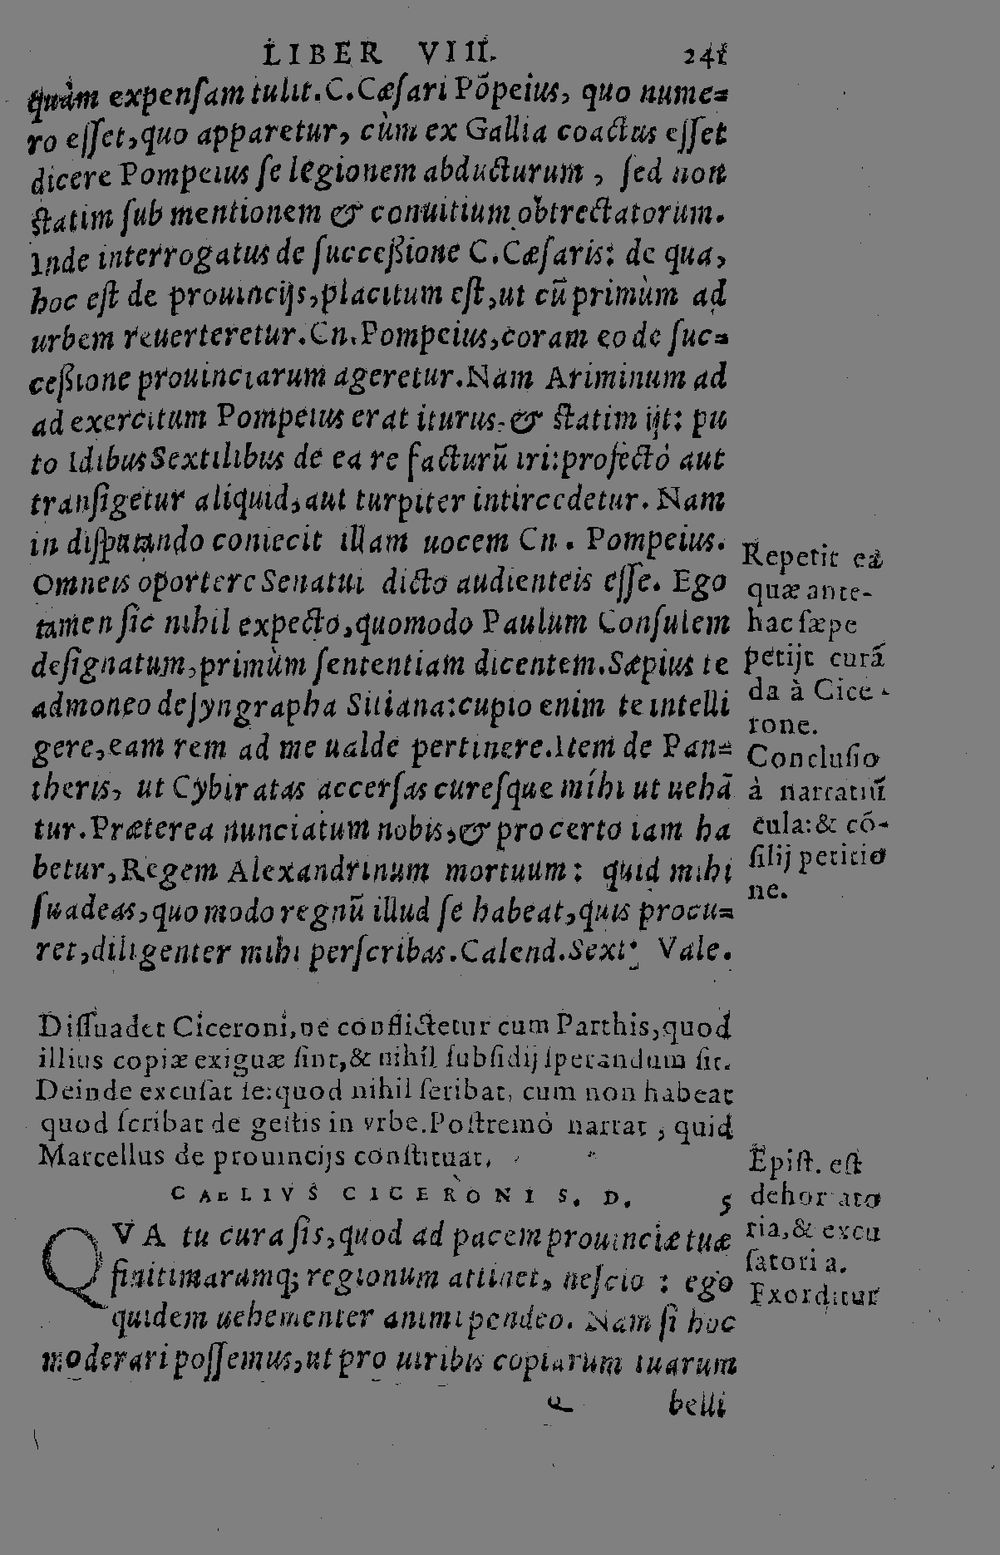 LIBER VIII. 241
quàm expensam tulit. C. Cæsari Põpeius, quo nume=
ro esset, quo apparetur, cùm ex Gallia coactus esset
dicere Pompeius se legionem abducturum, sed non
statim sub mentionem & conuitium obtrectatorum.
Inde interrogatus de successione C. Cæsaris: de qua,
hoc est de prouincijs, placitum est, ut cũ primùm ad
urbem reuerteretur. Cn. Pompeius, coram eo de suc=
cessione prouinciarum ageretur. Nam Ariminum ad
ad exercitum Pompeius erat iturus. & statim ijt: pu
to Idibus Sextilibus de ea re facturũ iri: profectò aut
transigetur aliquid, aut turpiter intircedetur. Nam
in disputando coniecit illam uocem Cn. Pompeius.
Omneis oportere Senatui dicto audienteis esse. Ego
tamen sic nihil expecto, quomodo Paulum Consulem
designatum, primùm sententiam dicentem. Sæpius te
admoneo de syngrapha Sitiana: cupio enim te intelli
gere, eam rem ad me ualde pertinere. Item de Pan=
theris, ut Cybiratas accersas curesque mihi ut uehã
tur. Præterea nunciatum nobis, & pro certo iam ha
betur, Regem Alexandrinum mortuum: quid mihi
suadeas, quo modo regnũ illud se habeat, quis procu=
ret, diligenter mihi perscribas. Calend. Sext. Vale.
Repetit ea
quæ ante-
hac sæpe
petijt curã
da à Cice-
rone.
Conclusio
à narratiũ
cula: & cõ-
silij petitio
ne.
Dissuadet Ciceroni, ne conflictetur cum Parthis, quod
illius copiæ exiguæ sint, & nihil subsidij sperandum sit.
Deinde excusat se: quod nihil scribat, cum non habeat
quod scribat de gestis in vrbe. Postremò narrat, quid
Marcellus de prouincijs constituat.
CAELIVS CICERONI S. D. 5
QVA tu cura sis, quod ad pacem prouinciæ tuæ
finitimarumq; regionum attinet, nescio: ego
quidem uehementer animi pendeo. Nam si hoc
moderari possemus, ut pro uiribus copiarum tuarum
Epist. est
dehortato
ria, & excu
satoria.
Exorditur
Q belli